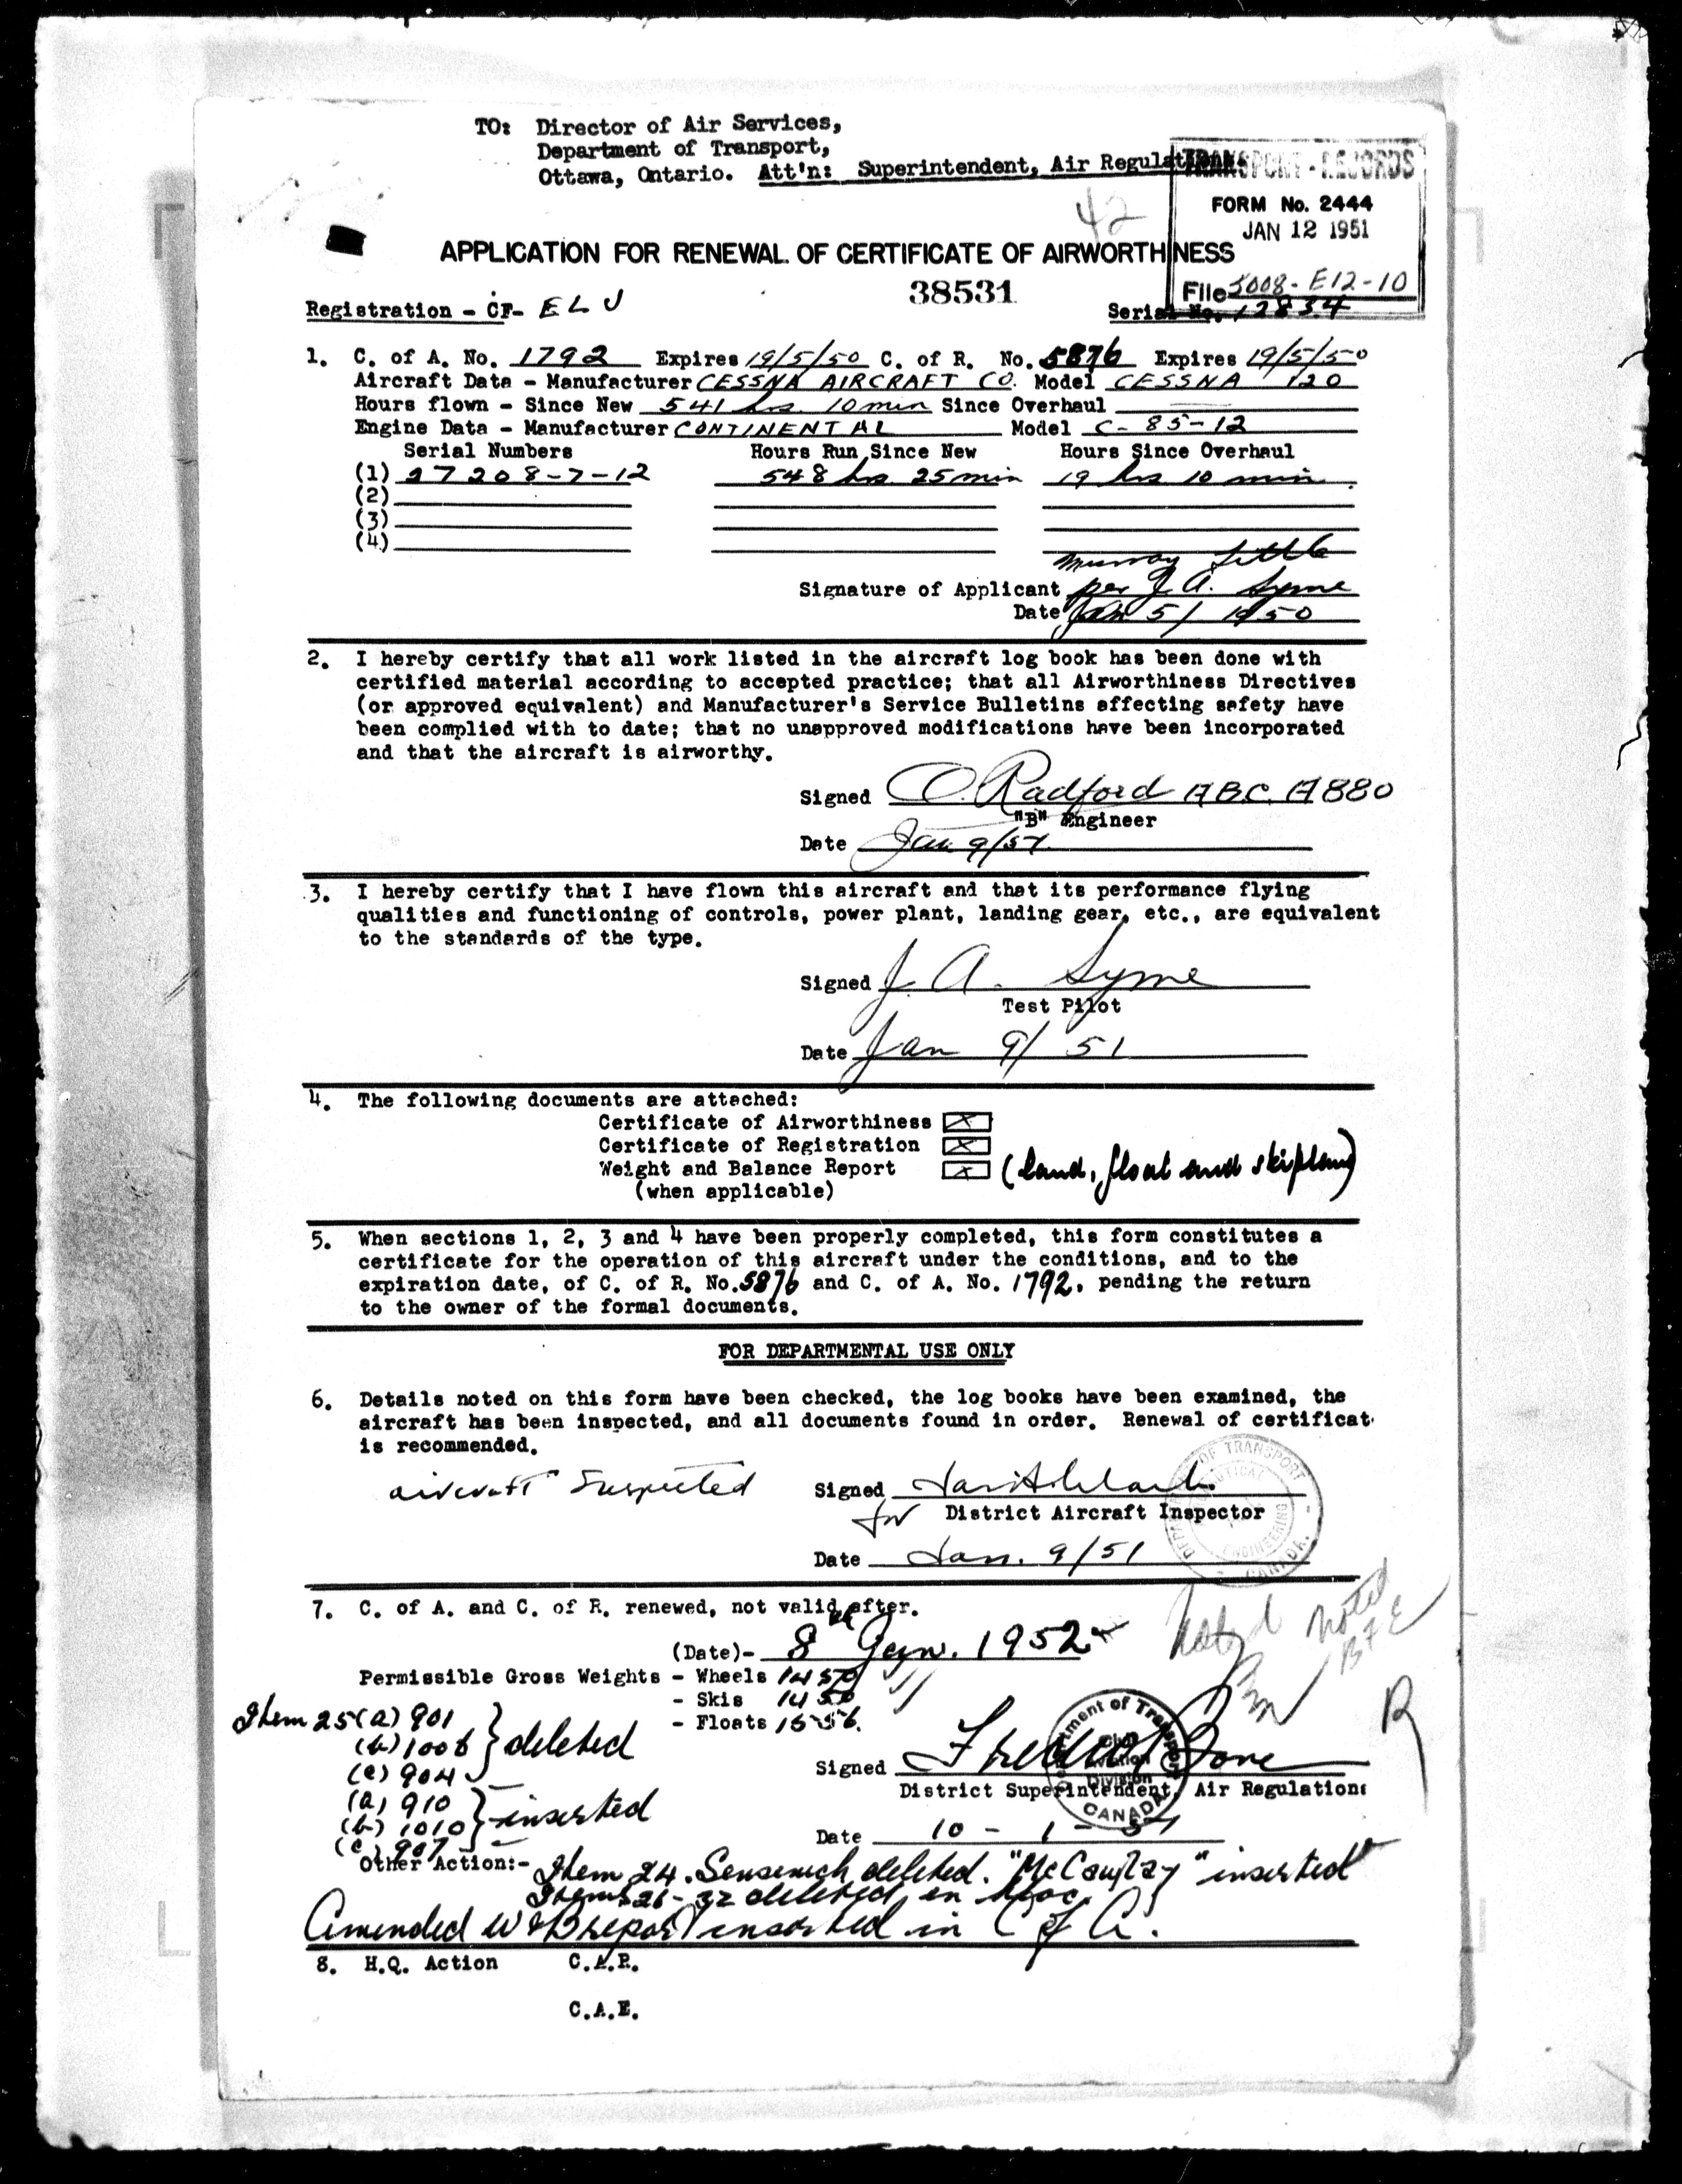 TO: Director of Air Services,
Department of Transport,
Ottawa, Ontario. Att'n: Superintendent, Air Regulations
TRANSPORT - RECORDS
FORM No. 2444
JAN 12 1951
File 5008-E12-10
42
APPLICATION FOR RENEWAL OF CERTIFICATE OF AIRWORTHINESS
38531
Registration - CF- ELU Serial No. 12834
1. C. of A. No. 1792 Expires 19/5/50 C. of R. No. 5876 Expires 19/5/50
Aircraft Data - Manufacturer CESSNA AIRCRAFT CO. Model CESSNA 120
Hours flown - Since New 541 hrs. 10 min Since Overhaul
Engine Data - Manufacturer CONTINENTAL Model C-85-12
Serial Numbers Hours Run Since New Hours Since Overhaul
(1) 27208-7-12 548 hrs 25 min 19 hrs 10 min.
(2)
(3)
(4)
Murray Little
Signature of Applicant per J. A. Syme
Date Jan 5/ 1950
2. I hereby certify that all work listed in the aircraft log book has been done with
certified material according to accepted practice; that all Airworthiness Directives
(or approved equivalent) and Manufacturer's Service Bulletins affecting safety have
been complied with to date; that no unapproved modifications have been incorporated
and that the aircraft is airworthy.
Signed O. Radford ABC. A880
"B" Engineer
Date Jan 9/51.
3. I hereby certify that I have flown this aircraft and that its performance flying
qualities and functioning of controls, power plant, landing gear, etc., are equivalent
to the standards of the type.
Signed J. A. Syme
Test Pilot
Date Jan 9/ 51
4. The following documents are attached:
Certificate of Airworthiness X
Certificate of Registration X
Weight and Balance Report X (land, float and skiplane)
(when applicable)
5. When sections 1, 2, 3 and 4 have been properly completed, this form constitutes a
certificate for the operation of this aircraft under the conditions, and to the
expiration date, of C. of R. No. 5876 and C. of A. No. 1792, pending the return
to the owner of the formal documents.
FOR DEPARTMENTAL USE ONLY
6. Details noted on this form have been checked, the log books have been examined, the
aircraft has been inspected, and all documents found in order. Renewal of certificat
is recommended.
aircraft inspected Signed
for District Aircraft Inspector
Date Jan. 9/51
DEPARTMENT OF TRANSPORT
AERONAUTICAL
ENGINEERING
CANADA
7. C. of A. and C. of R. renewed, not valid after.
(Date)- 8th Jan. 1952
Noted
Permissible Gross Weights - Wheels 1450
- Skis 1450
- Floats 1556.
Item 25(a) 901
(b) 1006 } deleted
(c) 904
(a) 910
(b) 1010 } inserted
(c) 907
R
Signed
District Superintendent, Air Regulations
Department of Transport
Civil Aviation Division
CANADA
Date 10 - 1 - 51
Other Action:- Item 24. Sensenich deleted. "McCauley" inserted
Items 26-32 deleted
Amended W & B report inserted in C of A.
8. H.Q. Action C.A.R.
C.A.E.